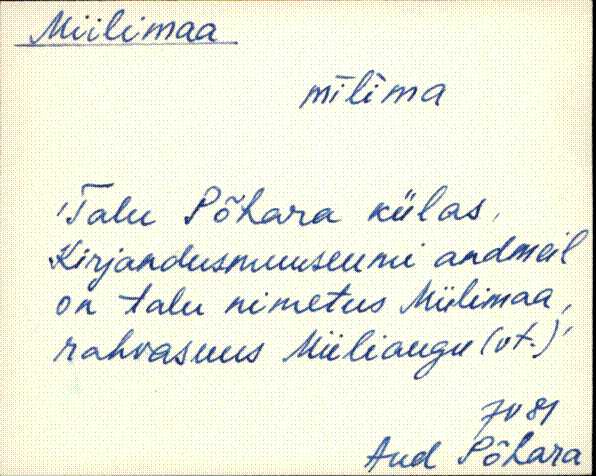 Miilimaa
mīlima
'Talu Põhara külas,
Kirjandusmuuseumi andmeil
on talu nimetus Miilimaa,
rahvasuus Miiliaugu (vt.)'
7V 81
Aud Põhara